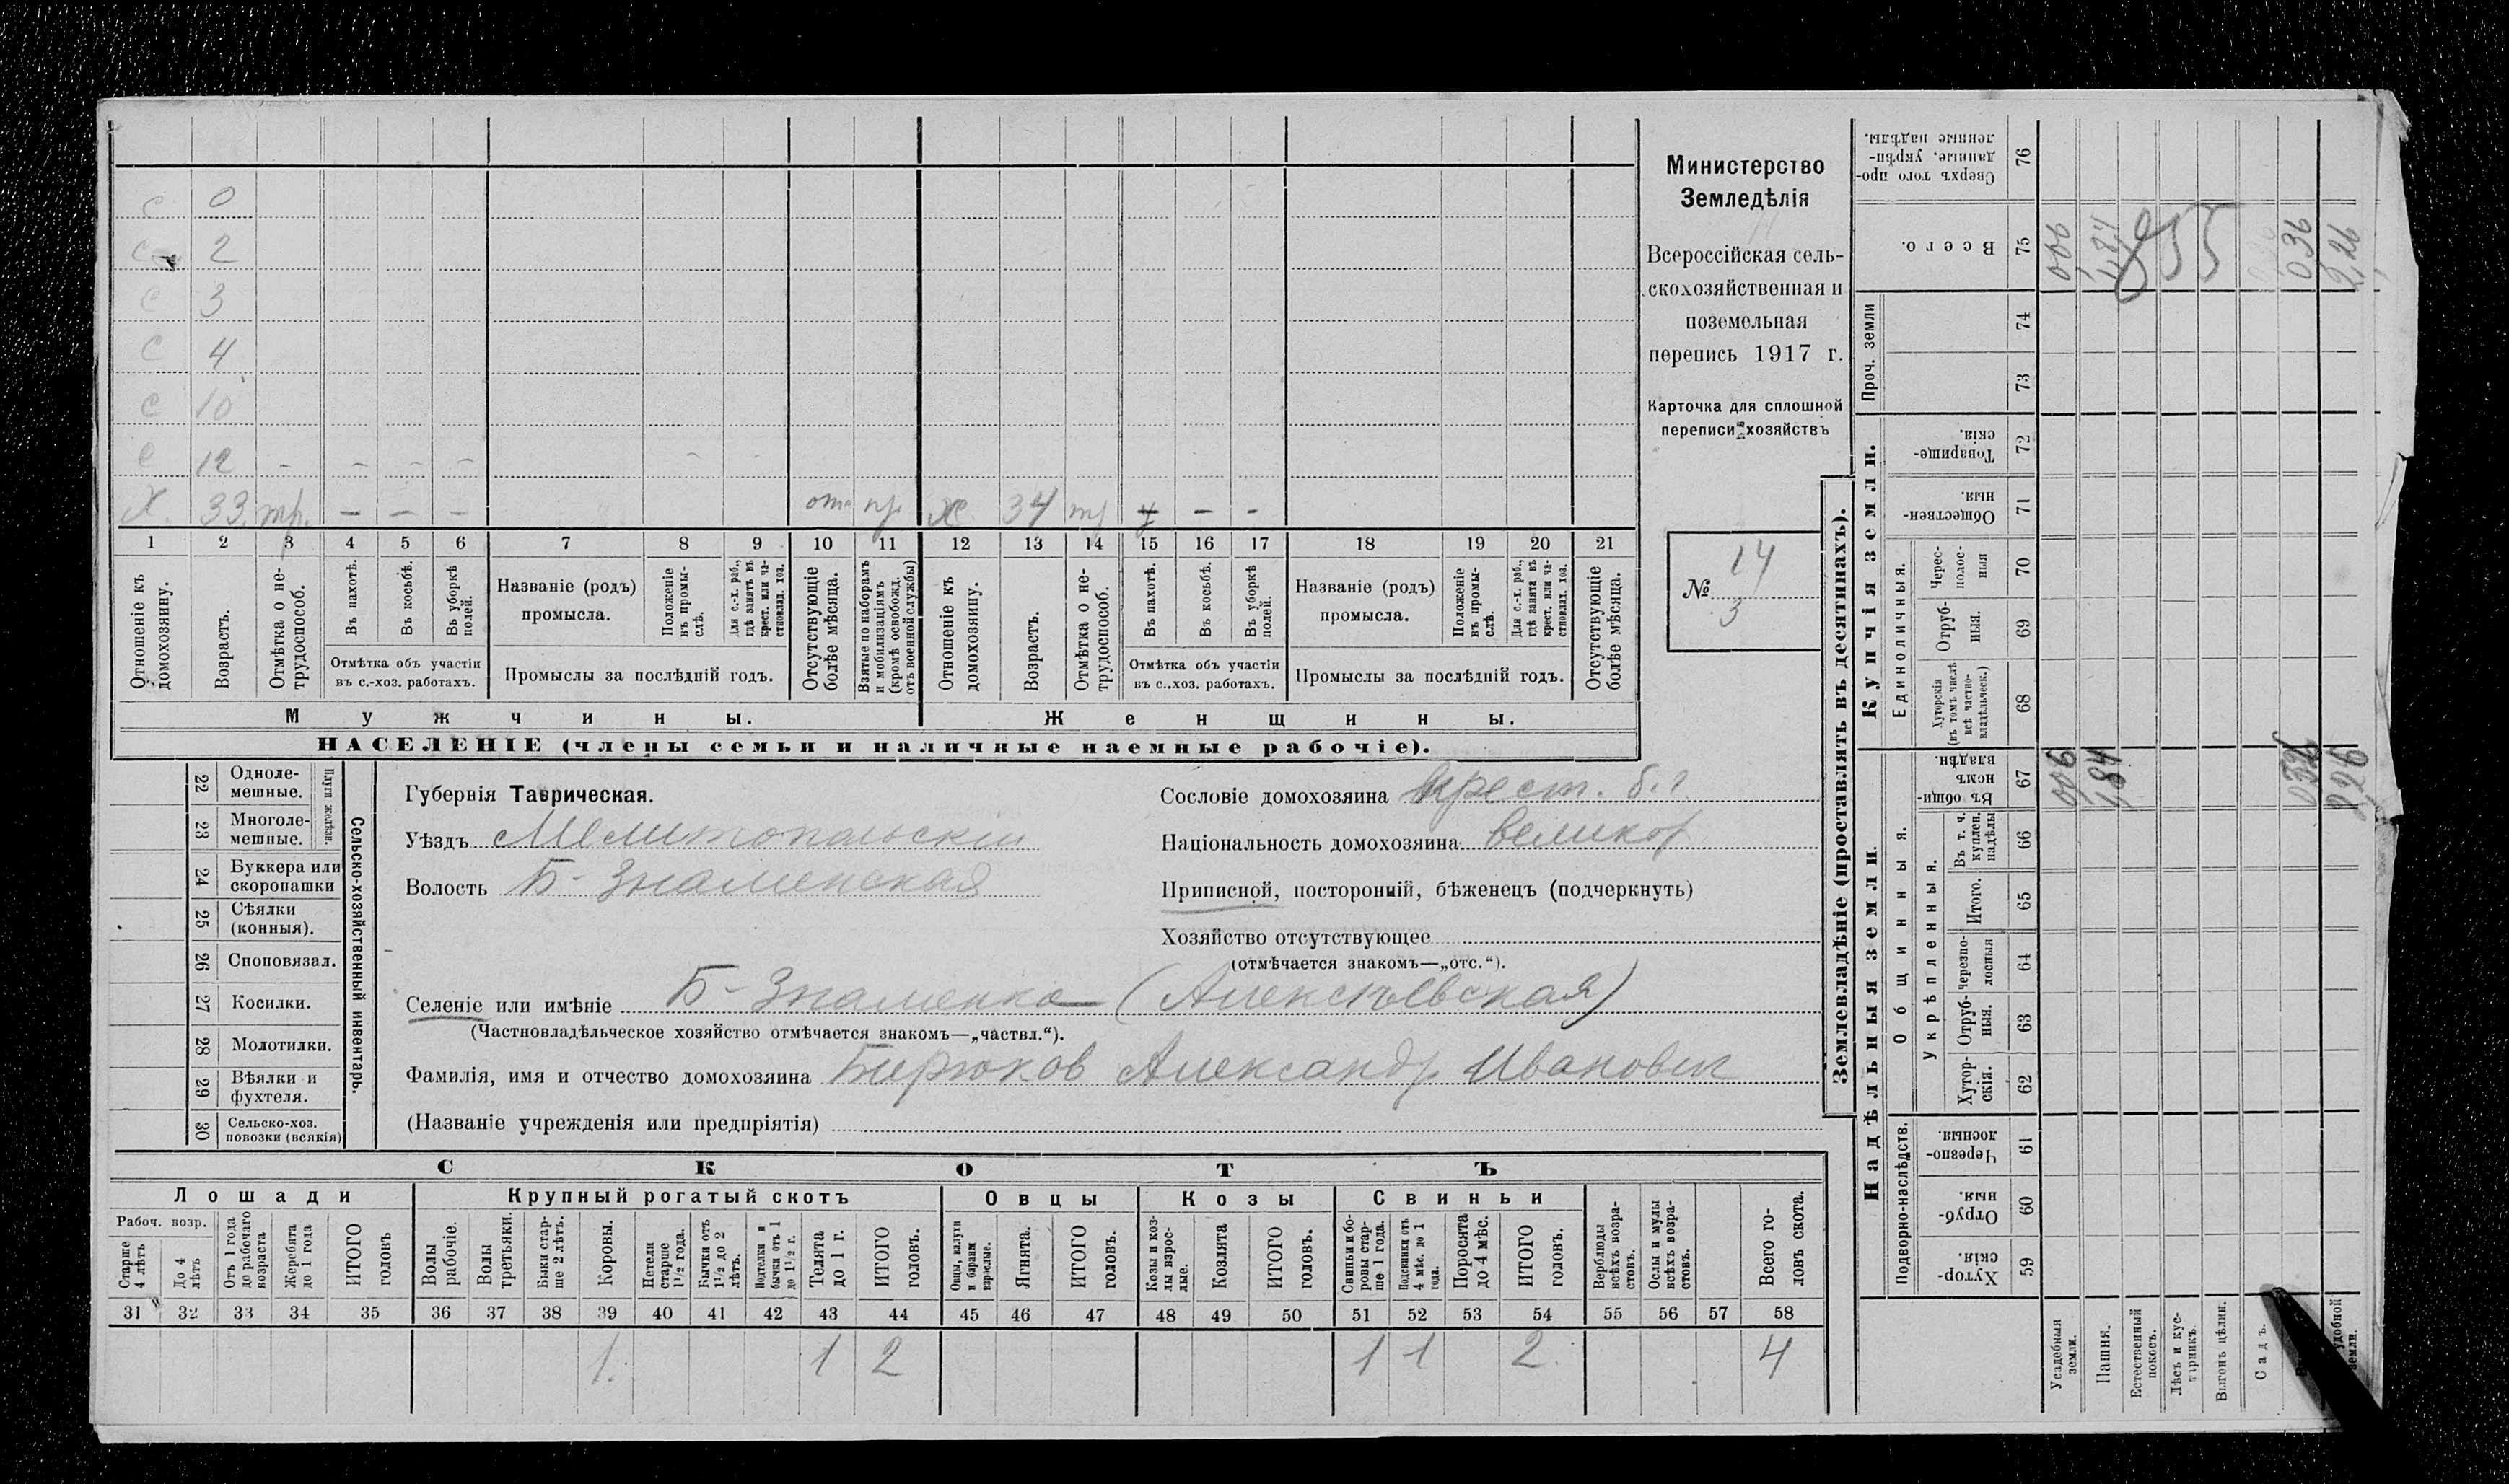 с 0
с 2
с 3
с 4
с 10
с 12 - - - - - -
Х. 33 тр. - - - отс пр. ж 34 тр - -
1 2 3 4 5 6 7 8 9 10 11 12 13 14 15 16 17 18 19 20 21
Отношеніе къ домохозяину.
Возрастъ.
Отмѣтка о не-трудоспособ.
Въ пахотѣ.
Въ косьбѣ.
Въ уборкѣ полей.
Отмѣтка объ участіи
въ с.-хоз. работахъ.
Названіе (родъ)
промысла.
Положеніе въ промы-слѣ.
Для с.-х. раб., гдѣ занятъ въ крест. или ча-стновлад. хоз.
Промыслы за послѣдній годъ.
Отсутствующіе болѣе мѣсяца.
Взятые по наборамъ и мобилизаціямъ (кромѣ освобожд. отъ военной службы)
Отношеніе къ домохозяину.
Возрастъ.
Отмѣтка о не-трудоспособ.
Въ пахотѣ.
Въ косьбѣ.
Въ уборкѣ полей.
Отмѣтка объ участіи
въ с..хоз. работахъ.
Названіе (родъ)
промысла.
Положеніе въ промы-слѣ.
Для с.-х. раб., гдѣ занятъ въ крест. или ча-стновлад. хоз.
Промыслы за послѣдній годъ.
Отсутствующіе болѣе мѣсяца.
Мужчины. Женщины.
НАСЕЛЕНІЕ (члены семьи и наличные наемные рабочіе).
Министерство
Земледѣлія
Всероссійская сель-
скохозяйственная и
поземельная
перепись 1917 г.
Карточка для сплошной
переписи хозяйствъ
14
№
3
22 Одноле-мешные.
23 Многоле-мешные.
Плуги желѣзн.
24 Буккера или скоропашки
25 Сѣялки (конныя).
26 Сноповязал.
27 Косилки.
28 Молотилки.
29 Вѣялки и фухтеля.
30 Сельско-хоз. повозки (всякія)
Сельско-хозяйственный инвентарь.
Губернія Таврическая.
Уѣздъ Мелитопольскій
Волость Б-Знаменская
Сословіе домохозяина крест. б.г
Національность домохозяина великор
Приписной, посторонній, бѣженецъ (подчеркнуть)
Хозяйство отсутствующее
(отмѣчается знакомъ—„отс.“).
Селеніе или имѣніе Б-Знаменка (Алексѣевская)
(Частновладѣльческое хозяйство отмѣчается знакомъ—„частвл.“).
Фамилія, имя и отчество домохозяина Бирюков Александр Иванович
(Названіе учрежденія или предпріятія)
СКОТЪ
Лошади Крупный рогатый скотъ Овцы Козы Свиньи
Рабоч. возр.
Старше 4 лѣтъ
До 4 лѣтъ
Отъ 1 года до рабочаго возраста
Жеребята до 1 года
ИТОГО головъ
Волы рабочіе.
Волы третьяки.
Быки стар-ше 2 лѣтъ.
Коровы.
Нетели старше 1½ года.
Бычки отъ 1½ до 2 лѣтъ.
Подтелки и бычки отъ 1 до 1½ г.
Телята до 1 г.
ИТОГО головъ.
Овцы, валухи и бараны взрослые.
Ягнята.
ИТОГО головъ.
Козы и коз-лы взрос-лые.
Козлята
ИТОГО головъ.
Свиньи и бо-ровы стар-ше 1 года.
Подсвинки отъ 4 мѣс. до 1 года.
Поросята до 4 мѣс.
ИТОГО головъ.
Верблюды всѣхъ возра-стовъ.
Ослы и мулы всѣхъ возра-стовъ.
Всего го-ловъ скота.
31 32 33 34 35 36 37 38 39 40 41 42 43 44 45 46 47 48 49 50 51 52 53 54 55 56 57 58
1. 1 2 1 1 2. 4
Землевладѣніе (проставлять въ десятинахъ).
Сверхъ того про-данные, укрѣп-ленные надѣлы. 76
Всего. 75 006 1,84 955 036 2,26
Проч. земли 74 73
Купчія земли.
Товарище-скія. 72
Обществен-ныя. 71
Единоличныя.
Черес-полос-ныя 70
Отруб-ныя. 69
Хуторскія (въ томъ числѣ всѣ частно-владѣльческ.) 68
Надѣльныя земли.
Общинныя.
Въ общин-номъ владѣн. 67 006 1,84 036 2,26
Укрѣпленныя.
Въ т. ч. куплен. надѣлы 66
Итого. 65
черезпо-лосныя 64
Отруб-ныя. 63
Хутор-скія. 62
Подворно-наслѣдств.
Черезпо-лосныя. 61
Отруб-ныя. 60
Хутор-скія. 59
Усадебныя земли.
Пашня.
Естественный покосъ.
Лѣсъ и кус-тарникъ.
Выгонъ цѣлин.
Садъ.
удобной земли.